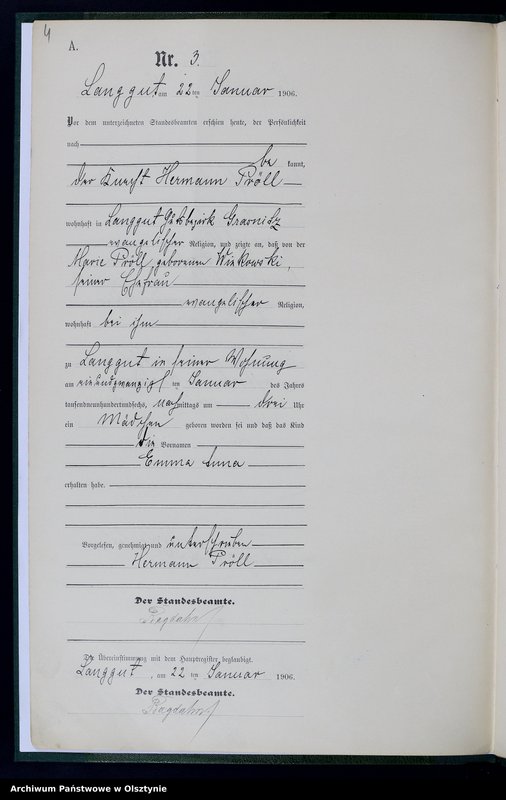 4
A.
Nr. 3.
Langgut am 22ten Januar 1906.
Vor dem unterzeichneten Standesbeamten erschien heute, der Persönlichkeit
nach
be kannt,
der Knecht Hermann Pröll
wohnhaft in Langgut Gutsbezirk Grasnitz
evangelischer Religion, und zeigte an, daß von der
Marie Pröll geborenen
seiner Ehefrau
evangelischer Religion,
wohnhaft bei ihm
zu Langgut in seiner Wohnung
am einundzwanzigsten Januar des Jahres
tausendneunhundertundsechs, nachmittags um drei Uhr
ein Mädchen geboren worden sei und daß das Kind
die Vornamen
Emma Anna
erhalten habe.
Vorgelesen, genehmigt und unterschrieben
Hermann Pröll
Der Standesbeamte.
Die Übereinstimmung mit dem Hauptregister beglaubigt.
Langgut, am 22ten Januar 1906.
Der Standesbeamte.
Archiwum Państwowe w Olsztynie